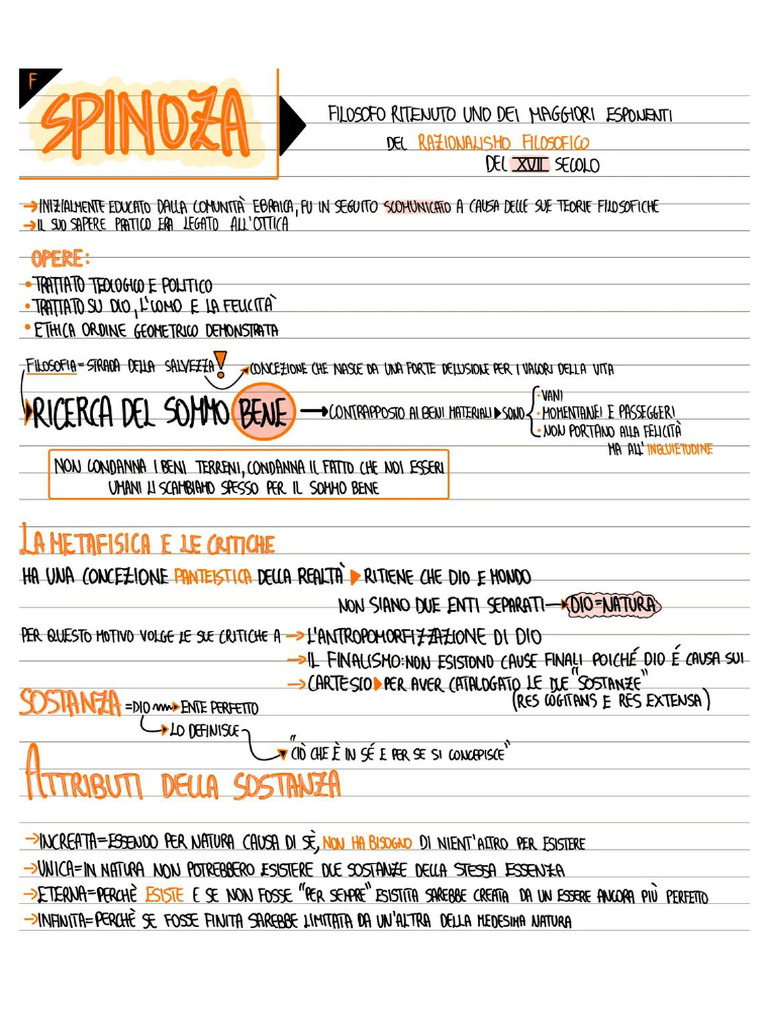 F
SPINOZA
FILOSOFO RITENUTO UNO DEI MAGGIORI ESPONENTI
DEL RAZIONALISMO FILOSOFICO
DEL XVII SECOLO
→ INIZIALMENTE EDUCATO DALLA COMUNITÀ EBRAICA, FU IN SEGUITO SCOMUNICATO A CAUSA DELLE SUE TEORIE FILOSOFICHE
→ IL SUO SAPERE PRATICO ERA LEGATO ALL'OTTICA
OPERE:
• TRATTATO TEOLOGICO E POLITICO
• TRATTATO SU DIO, L'UOMO E LA FELICITÀ
• ETHICA ORDINE GEOMETRICO DEMONSTRATA
FILOSOFIA = STRADA DELLA SALVEZZA! CONCEZIONE CHE NASCE DA UNA FORTE DELUSIONE PER I VALORI DELLA VITA
RICERCA DEL SOMMO BENE → CONTRAPPOSTO AI BENI MATERIALI ▶ SONO
• VANI
• MOMENTANEI E PASSEGGERI
• NON PORTANO ALLA FELICITÀ
MA ALL'INQUIETUDINE
NON CONDANNA I BENI TERRENI, CONDANNA IL FATTO CHE NOI ESSERI
UMANI LI SCAMBIAMO SPESSO PER IL SOMMO BENE
LA METAFISICA E LE CRITICHE
HA UNA CONCEZIONE PANTEISTICA DELLA REALTÀ ▶ RITIENE CHE DIO E MONDO
NON SIANO DUE ENTI SEPARATI → DIO = NATURA
PER QUESTO MOTIVO VOLGE LE SUE CRITICHE A → L'ANTROPOMORFIZZAZIONE DI DIO
→ IL FINALISMO: NON ESISTONO CAUSE FINALI POICHÉ DIO É CAUSA SUI
→ CARTESIO ▶ PER AVER CATALOGATO LE DUE "SOSTANZE"
(RES COGITANS E RES EXTENSA)
SOSTANZA = DIO → ENTE PERFETTO
LO DEFINISCE
"CIÒ CHE È IN SÉ E PER SE SI CONCEPISCE"
ATTRIBUTI DELLA SOSTANZA
→ INCREATA = ESSENDO PER NATURA CAUSA DI SÈ, NON HA BISOGNO DI NIENT'ALTRO PER ESISTERE
→ UNICA = IN NATURA NON POTREBBERO ESISTERE DUE SOSTANZE DELLA STESSA ESSENZA
→ ETERNA = PERCHÈ ESISTE E SE NON FOSSE "PER SEMPRE" ESISTITA SAREBBE CREATA DA UN ESSERE ANCORA PIÙ PERFETTO
→ INFINITA = PERCHÈ SE FOSSE FINITA SAREBBE LIMITATA DA UN'ALTRA DELLA MEDESIMA NATURA